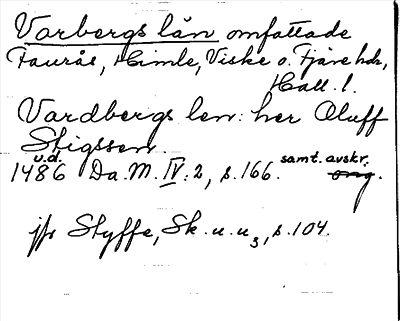 Varbergs län omfattade
Faurås, Himle, Viske o. Fjäre hdr,
Hall. l.
Vardbergs len: her Oluff
Stigssen.
u.d.
1486 Da. M. IV: 2, s. 166. samt. avskr.
orig.
jfr Styffe, Sk. u. u3, s. 104.